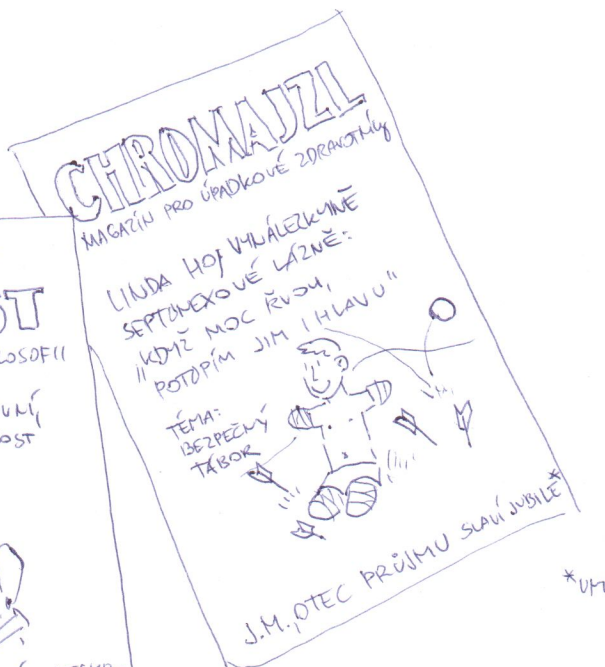 CHROMAJZL
MAGAZÍN PRO ÚPADKOVÉ ZDRAVOTNÍKY
LINDA HOJ VYNÁLEZKYNĚ
SEPTONEXOVÉ LÁZNĚ:
"KDYŽ MOC ŘVOU,
POTOPÍM JIM I HLAVU"
TÉMA:
BEZPEČNÝ
TÁBOR
J.M., OTEC PRŮJMU SLAVÍ JUBILÉ*
ST
LOSOFII
VNÍ,
OST
*UMT